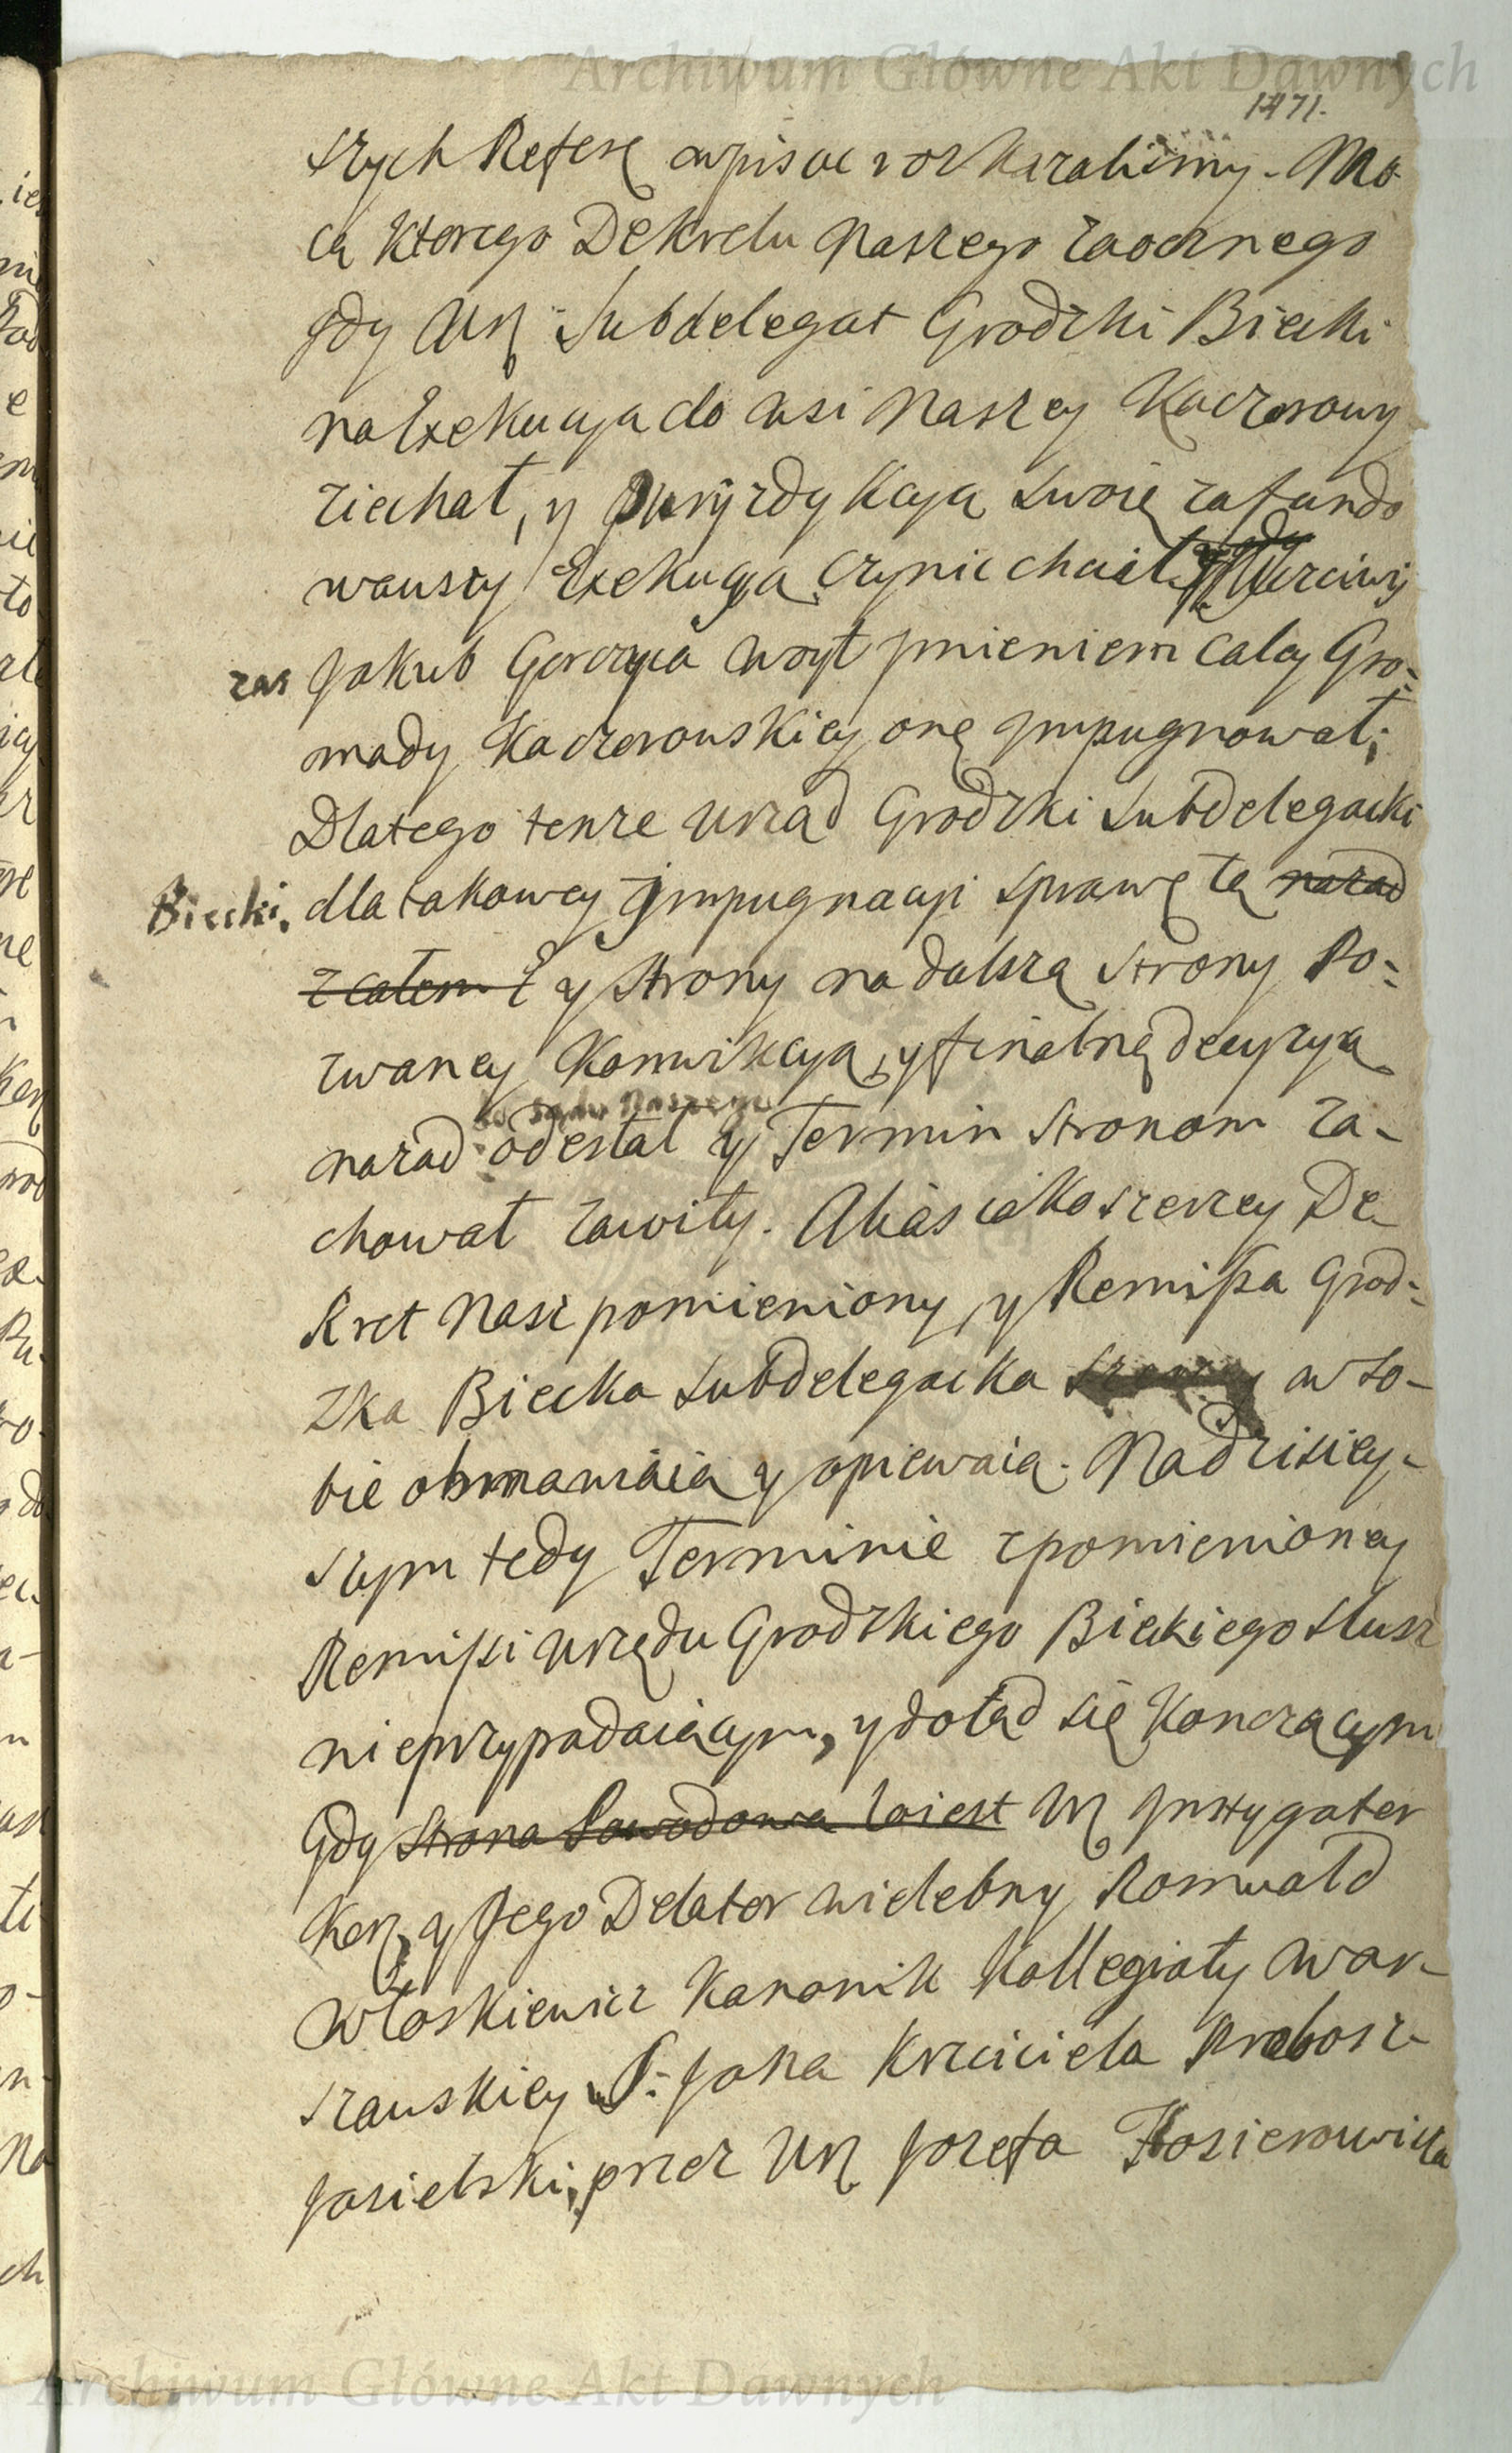 Archiwum Główne Akt Dawnych
1471.
szych Refere wpisac roskazalismy. Mo
cą ktorego Dekretu Naszego zaocznego
gdy Ur. Subdelegat Grodzki Biecki
na Exekucyą do wsi Naszey Kaczorowy
ziechał, y Juryzdykcyą swoię zafundo
wawszy Exekucyą czynic chciał, Uczciwy
zas Jakub Gorczyca woyt Jmieniem całey Gro-
mady Kaczorowskiey onę Jmpugnował;
Dlatego tenze Urząd Grodzki Subdelegacki
Biecki, dla takowey Jmpugnacyi sprawę tę nazad
z całemi y strony na dalszą strony Po-
zwaney Konwikcyą, y finalną decyzyą
do sądu Naszego
nazad odesłał y Termin stronom za-
chował zawity. Alias iako szerzey De
kret Nasz pomieniony, y Remissa Grod-
zka Biecka Subdelegacka w so-
bie obmawiaią y opiewaią. Na dzisiey-
szym tedy Terminie z pomienioney
Remissi Urzędu Grodzkiego Bieckiego słusz
nie przypadaiącym, y dotąd się kończącym
Gdy strona Powodowa iest Ur. Jnstygator
Ken. y Jego Delator Wielebny Romuald
Włoskiewicz Kanonik Kollegiaty War-
szawskiey S. Jana Krzciciela Probosz-
Jasielski, przez Ur. Jozefa Kosierowicza
Archiwum Główne Akt Dawnych